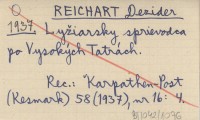 REICHART Dezider
1937. Lyžiarsky sprievodca
po Vysokých Tatrách.
Rec.: Karpathen-Post
(Kesmark) 58 (1937), nr 16: 4.